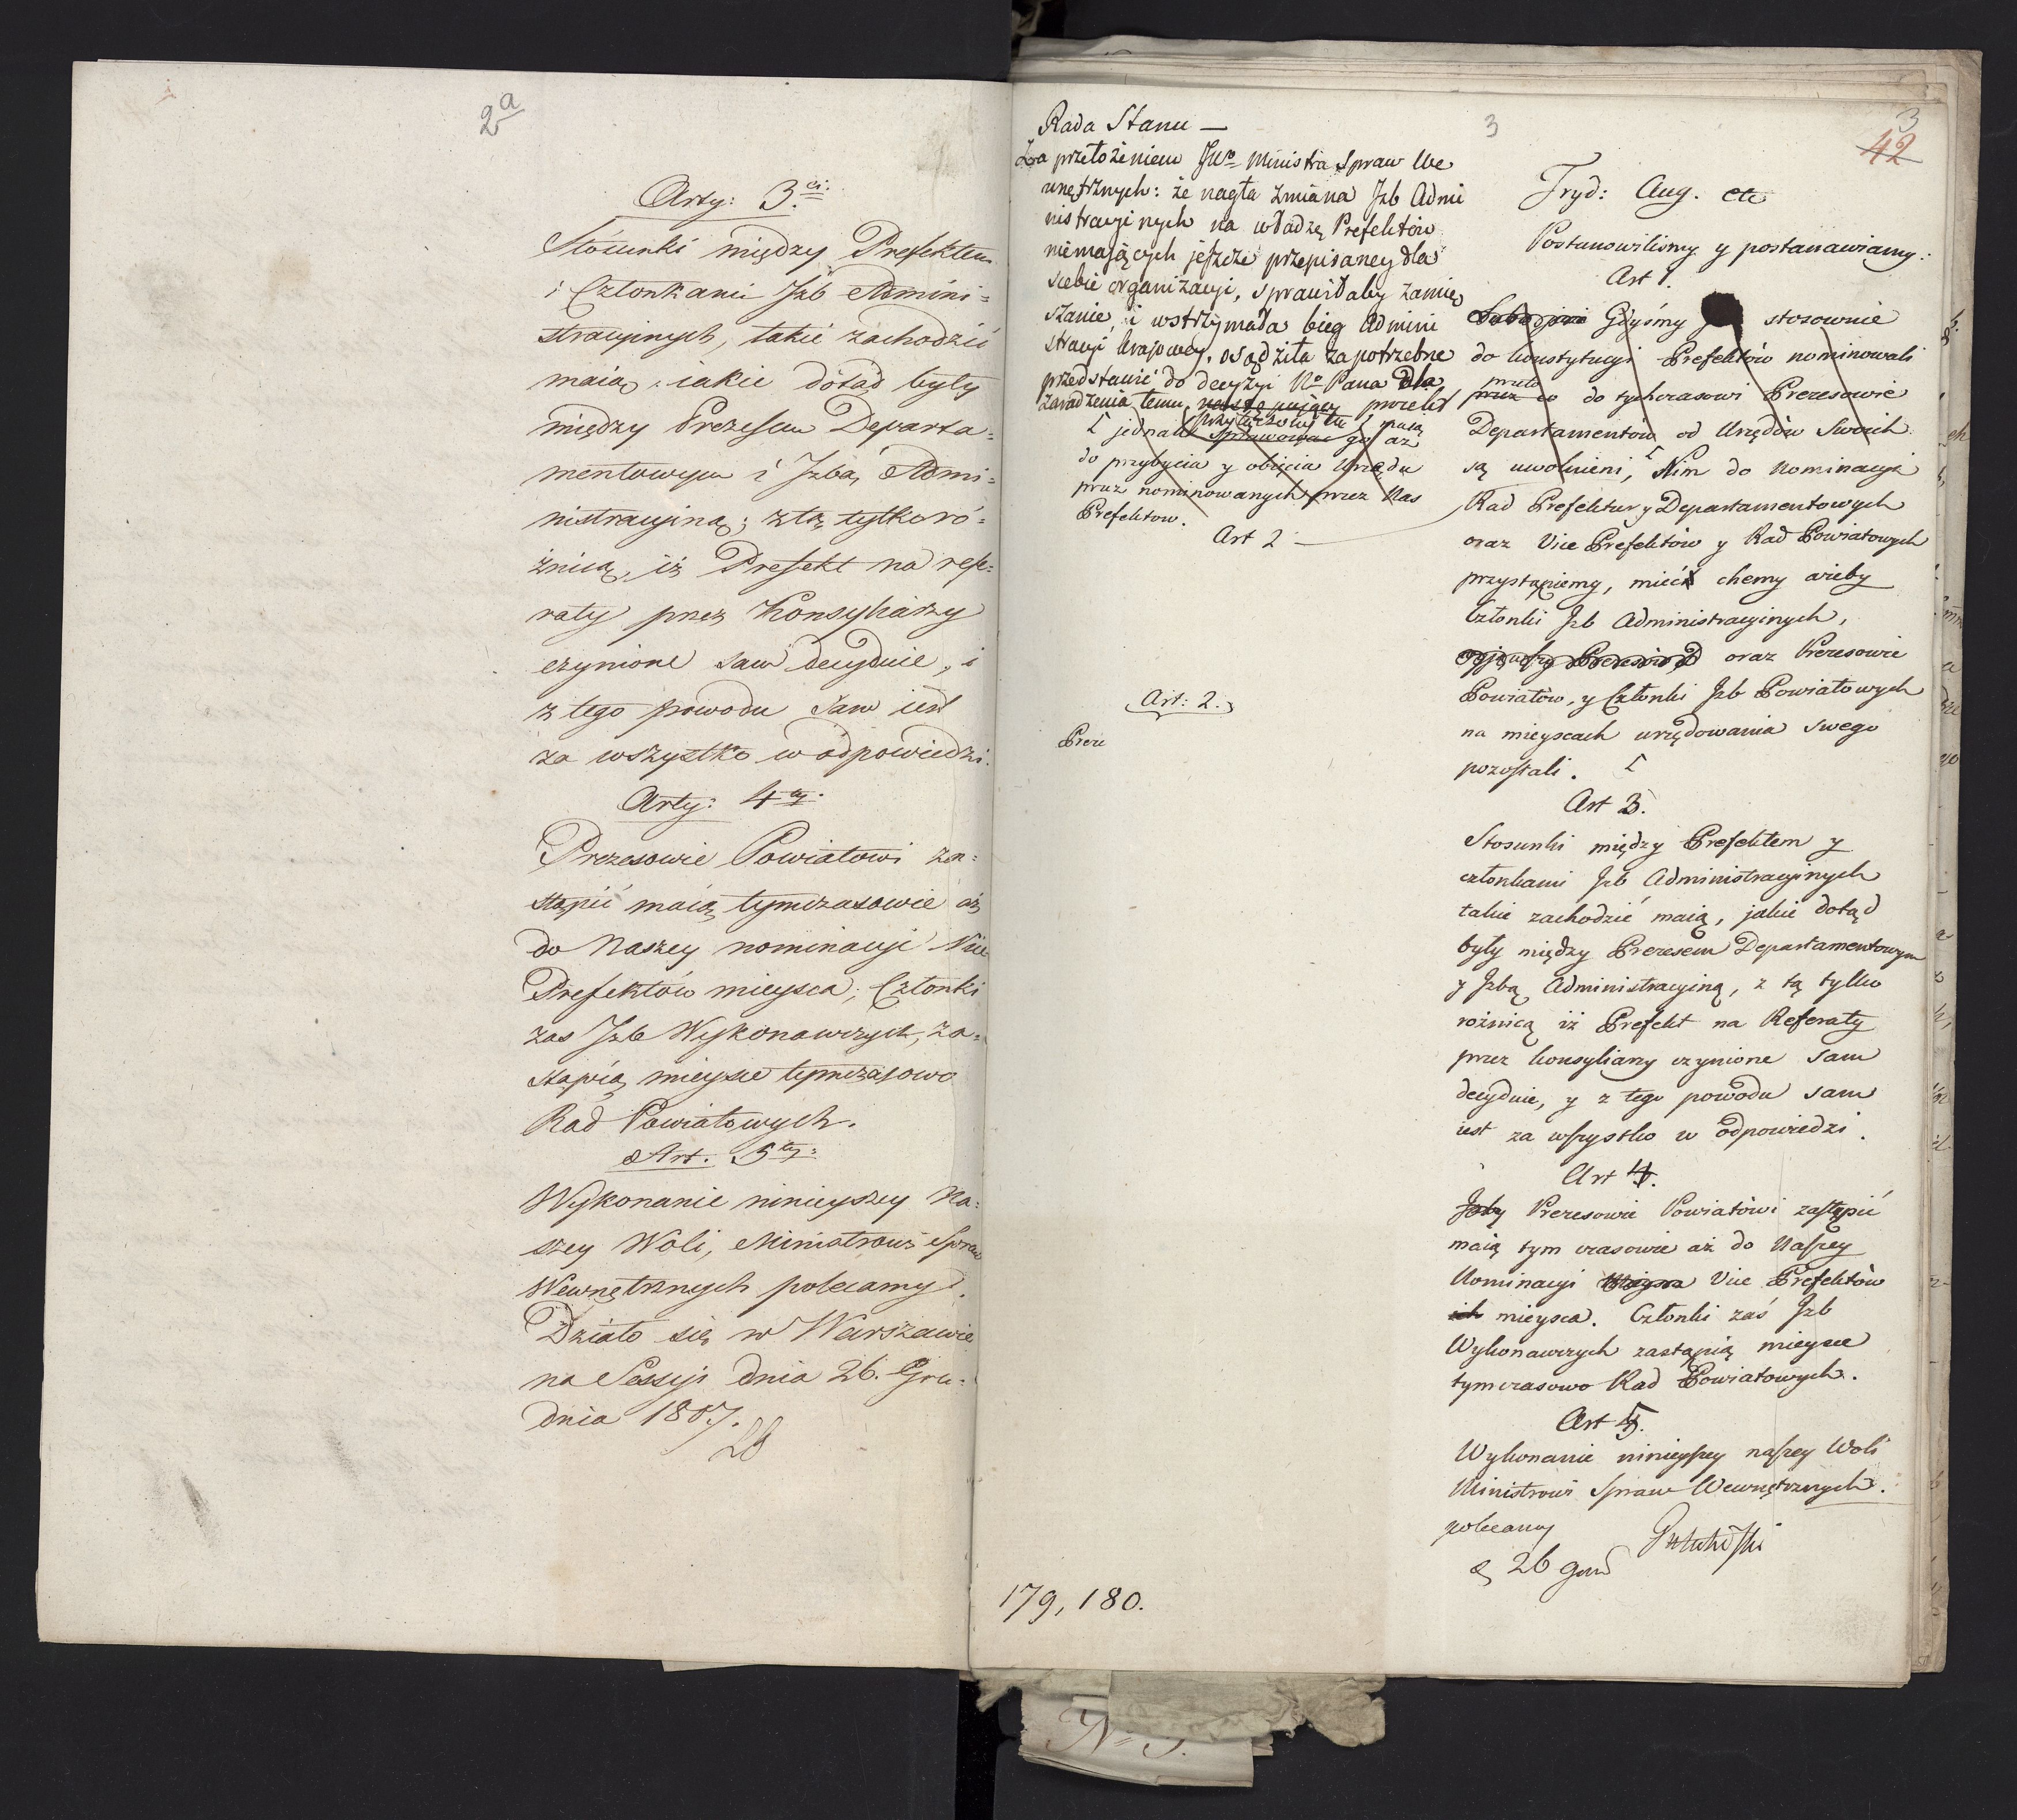 2a
Arty: 3ci.
Stósunki między Prefektem
i Członkami Jzb Admini=
stracyinych, takie zachodzić
maią, iakie dotąd były
między Prezesem Departa=
mentowym i Jzbą Admi=
nistracyiną; z tą tylko ró=
żnicą, iż Prefekt na refe=
raty przez Konsyliarzy
czynione sam decyduie, i
z tego powodu sam iest
za wszystko w odpowiedzi.
Arty: 4ty.
Prezesowie Powiatowi za=
stąpić maią tymczasowie aż
do Naszey nominacyi Vice
Prefektów mieysca; Członki
zas Jzb Wykonawczych, za=
stąpią mieysce tymczasowo
Rad Powiatowych.
Art. 5ty:
Wykonanie ninieyszey Na=
szey Woli, Ministrowi Spraw
Wewnętrznych polecamy.
Działo się w Warszawie
na Sessyi dnia 26. Gru=
dnia 1807.
Rada Stanu —
Za przełożeniem JWo Ministra Spraw We
wnętrznych: że nagła zmiana Jzb Admi
nistracyinych na władzę Prefektów
niemających jeszcze przepisaney dla
siebie organizacyi, sprawiłaby zamię
szanie, i wstrzymała bieg Admini
stracyi krajowey, osądziła za potrzebne
przedstawić do decyzyi No Pana dla
zaradzenia temu, następujący proiekt
jednak sprawować go aż
do przybycia y obięcia Urzędu
przez nominowanych przez Nas
Prefektow.
Art 2 —
Art: 2.
Preze
179, 180.
3
3
42
Fryd: Aug. etc
Postanowiliśmy y postanawiamy:
Art 1.
Gdyśmy stosownie
do konstytucyi Prefektów nominowali
przeto
przez co do tychczasowi Prezesowie
Departamentów od Urzędów Swoich
są uwolnieni, Nim do Nominacyi
Rad Prefektur y Departamentowych
oraz Vice Prefektów y Rad Powiatowych
przystąpiemy, mieć chcemy ażeby
Członki Jzb Administracyinych,
oraz Prezesowie
Powiatów, y Członki Jzb Powiatowych
na mieyscach urzędowania swego
pozostali.
Art 3.
Stosunki między Prefektem y
członkami Jzb Administracyinych
takie zachodzić maią, jakie dotąd
były między Prezesem Departamentowym
y Jzbą Administracyiną, z tą tylko
rożnicą iż Prefekt na Referaty
przez konsyliarzy czynione sam
decyduie, y z tego powodu sam
iest za wszystko w odpowiedzi.
Art 4.
Jzby Prezesowie Powiatówi zastąpić
maią tym czasowie aż do Naszey
Nominacyi Mieysca Vice Prefektów
ich mieysca. Członki zaś Jzb
Wykonawczych zastąpią mieysce
tymczasowo Rad Powiatowych.
Art 5.
Wykonanie ninieyszey naszey Woli
Ministrowi Spraw Wewnętrznych.
polecamy
26 Grud